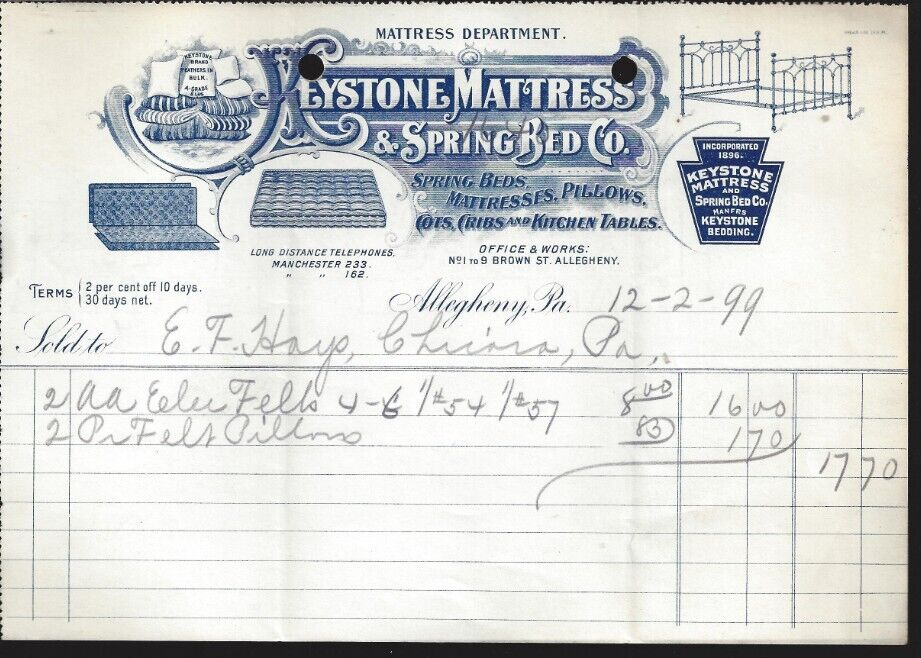 MATTRESS DEPARTMENT.
KEYSTONE MATTRESS
& SPRING BED CO.
SPRING BEDS,
MATTRESSES, PILLOWS,
COTS, CRIBS AND KITCHEN TABLES.
KEYSTONE
BRAND
FEATHERS IN
BULK.
4-GRADE
INCORPORATED
1896.
KEYSTONE
MATTRESS
AND
SPRING BED CO.
MANFRS
KEYSTONE
BEDDING.
LONG DISTANCE TELEPHONES,
MANCHESTER 233.
" " 162.
OFFICE & WORKS:
No 1 TO 9 BROWN ST. ALLEGHENY.
TERMS 2 per cent off 10 days.
30 days net.
Allegheny, Pa. 12-2-99
Sold to E. F. Hays, Chicora, Pa.,
2 AA Felts 4-6 1/#54 1/#57 8 00 16 00
2 Pr Felt Pillows 85 1 70
17 70